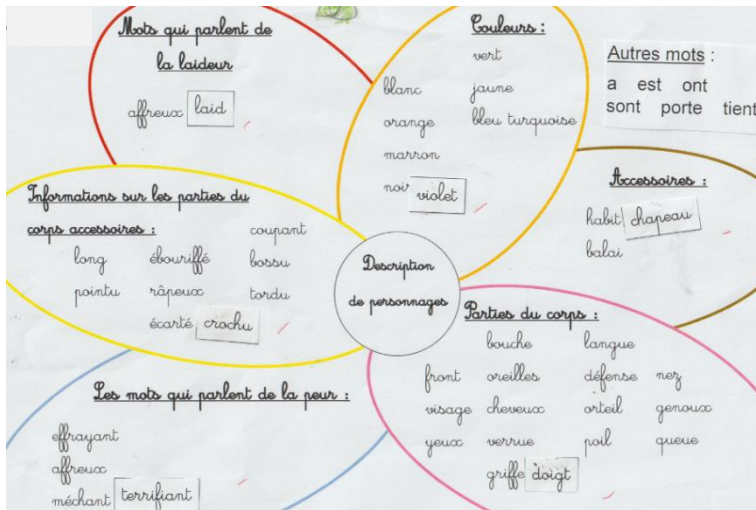 Mots qui parlent de
la laideur
affreux laid
Couleurs :
vert
blanc jaune
orange bleu turquoise
marron
noir violet
Autres mots :
a est ont
sont porte tient
Accessoires :
habit chapeau
balai
Informations sur les parties du
corps accessoires : coupant
long ébouriffé bossu
pointu râpeux tordu
écarté crochu
Description
de personnages
Parties du corps :
bouche langue
front oreilles défense nez
visage cheveux orteil genoux
yeux verrue poil queue
griffe doigt
Les mots qui parlent de la peur :
effrayant
affreux
méchant terrifiant